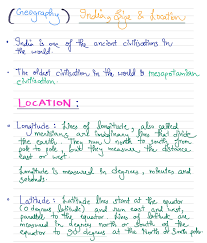 Geography) India Size & Location
India is one of the ancient civilisations in
the world.
The oldest civilisation in the world is mesopotamian
civilization
LOCATION:
Longitude: Lines of longitude, also called
meridians and imaginary lines that divide
the earth. They run north to south from
pole to pole, but they measure the distance
east or west.
Longitude is measured in degrees, minutes and
seconds.
Latitude: Latitude lines start at the equator
(0 degrees latitude) and run east and west,
parallel to the equator. Lines of latitude are
measured in degrees north or south of the
equator to 90 degrees at the North or South poles